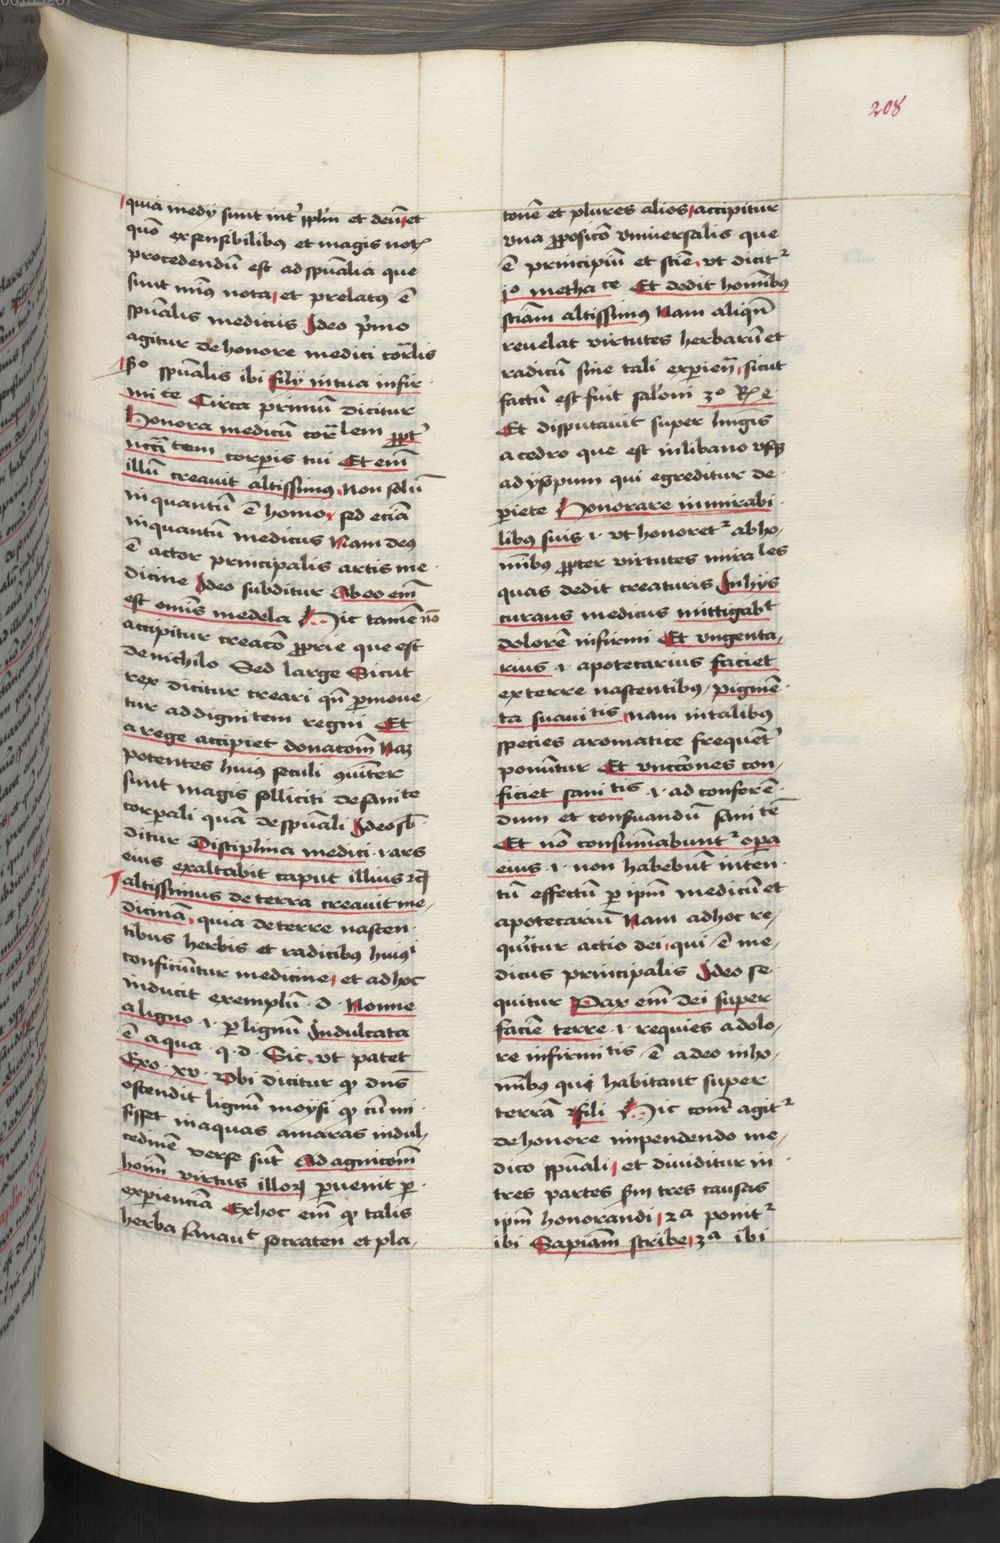 208
quia medij sunt int͛ pplm̄ et deū et
quō ex sensibilibꝰ et magis not͛
procedendū est ad spūalia que
sunt minꝰ nota et prelatꝰ ē
spūalis medicus Ideo pͥmo
agitur de honore medici corꝑlis
2º spūalis ibi fily in tua infir
mitᵗᵉ Circa primū dicitur
Honora medicū corꝑlem ꝓpt͛
nccītatem corꝑis tui Et em̄
illū creauit altissimꝰ Non solū
inquantū ē homo sed eciā
inquantū medicus Nam deꝰ
ē actor principalis artis me
dicine Ideo subditur A deo em̄
est om̄is medela Hic tamē nō
accipitur creacō ꝓprie que est
de nichilo Sed large Sicut
rex dicitur creari qn̄ ꝓmoue
tur ad dignitatem regni Et
a rege accipiet donacōm Naꝫ
potentes huiꝰ seculi ꝯmuniter
sunt magis solliciti de sanitᵗᵉ
corꝑali quā de spūali Ideo sb̄
ditur Disciplina medici .i. ars
eius exaltabit caput illius ⁊cͣ
altissimus de terra creauit me
dicinā quia de terre nascen
tibus herbis et radicibꝰ huiꝰⁱ
conficiūtur medicine et ad hoc
inducit exemplū .d. Nonne
a ligno .i. ꝑ lignū Indulcata
ē aqua .q.d. Sic vt patet
Exo. xv. Vbi dicitur ꝙ dn̄s
ostendit lignū moysi ꝙ cū mi
sisset in aquas amaras in dul
cedinē verse sūt Ad agnicōm
hoīm virtus illoꝝ ꝑuenit ꝑ
experienciā Ex hoc em̄ ꝙ talis
herba sanauᵗ socraten et pla
tonē et plures alios accipitur
vna ꝓposicō vniuersalis que
ē principiū et scīe vt dicit͛
jº methaᶜᵉ Et dedit hom̄ibꝰ
sciam̄ altissimꝰ Nam aliqn̄
reuelat virtutes herbarū et
radicū sine tali experien̄ sicut
factū est fuit salōni 3º Rͬ 4
Et disputauit super lingīs
a cedro que est in libano vsqꝫ
ad ysopum qui egreditur de
pariete Honorare in mirabi
libꝰ suis .i. vt honoret͛ ab ho
mībꝰ ꝓpter virtutes mirales
quas dedit creaturis In hys
curans medicus mittigabᵗ
dolorē infirmi Et vngenta
rius .i. apotecarius faciet
ex terre nascentibꝰ pigmē
ta suauitᵗⁱˢ Nam in talibꝰ
species aromatice frequēt͛
ponūtur Et vnccōnes con
ficiet sanitᵗⁱˢ .i. ad conferē
dum et conseruandū sanitᵗᵉ
Et nō consūmabunt͛ oꝑa
eius .i. non habebūt inten
tū effectū ꝑ ipm̄ medicū et
apotecariū Nam ad hoc re
quīrtur actio dei qui ē me
dicus principalis Ideo se
quitur Pax em̄ dei super
faciē terre .i. requies a dolo
re infirmitᵗⁱˢ ē a deo in ho
mībꝰ qui habitant super
terrā fili Hic cōnr̄ agit͛
de honore impendendo me
dico spūali et diuiditur in
tres partes sm̄ tres causas
ipm̄ honorandi 2ª ponit͛
ibi Sapiam̄ scribe 3ª ibi